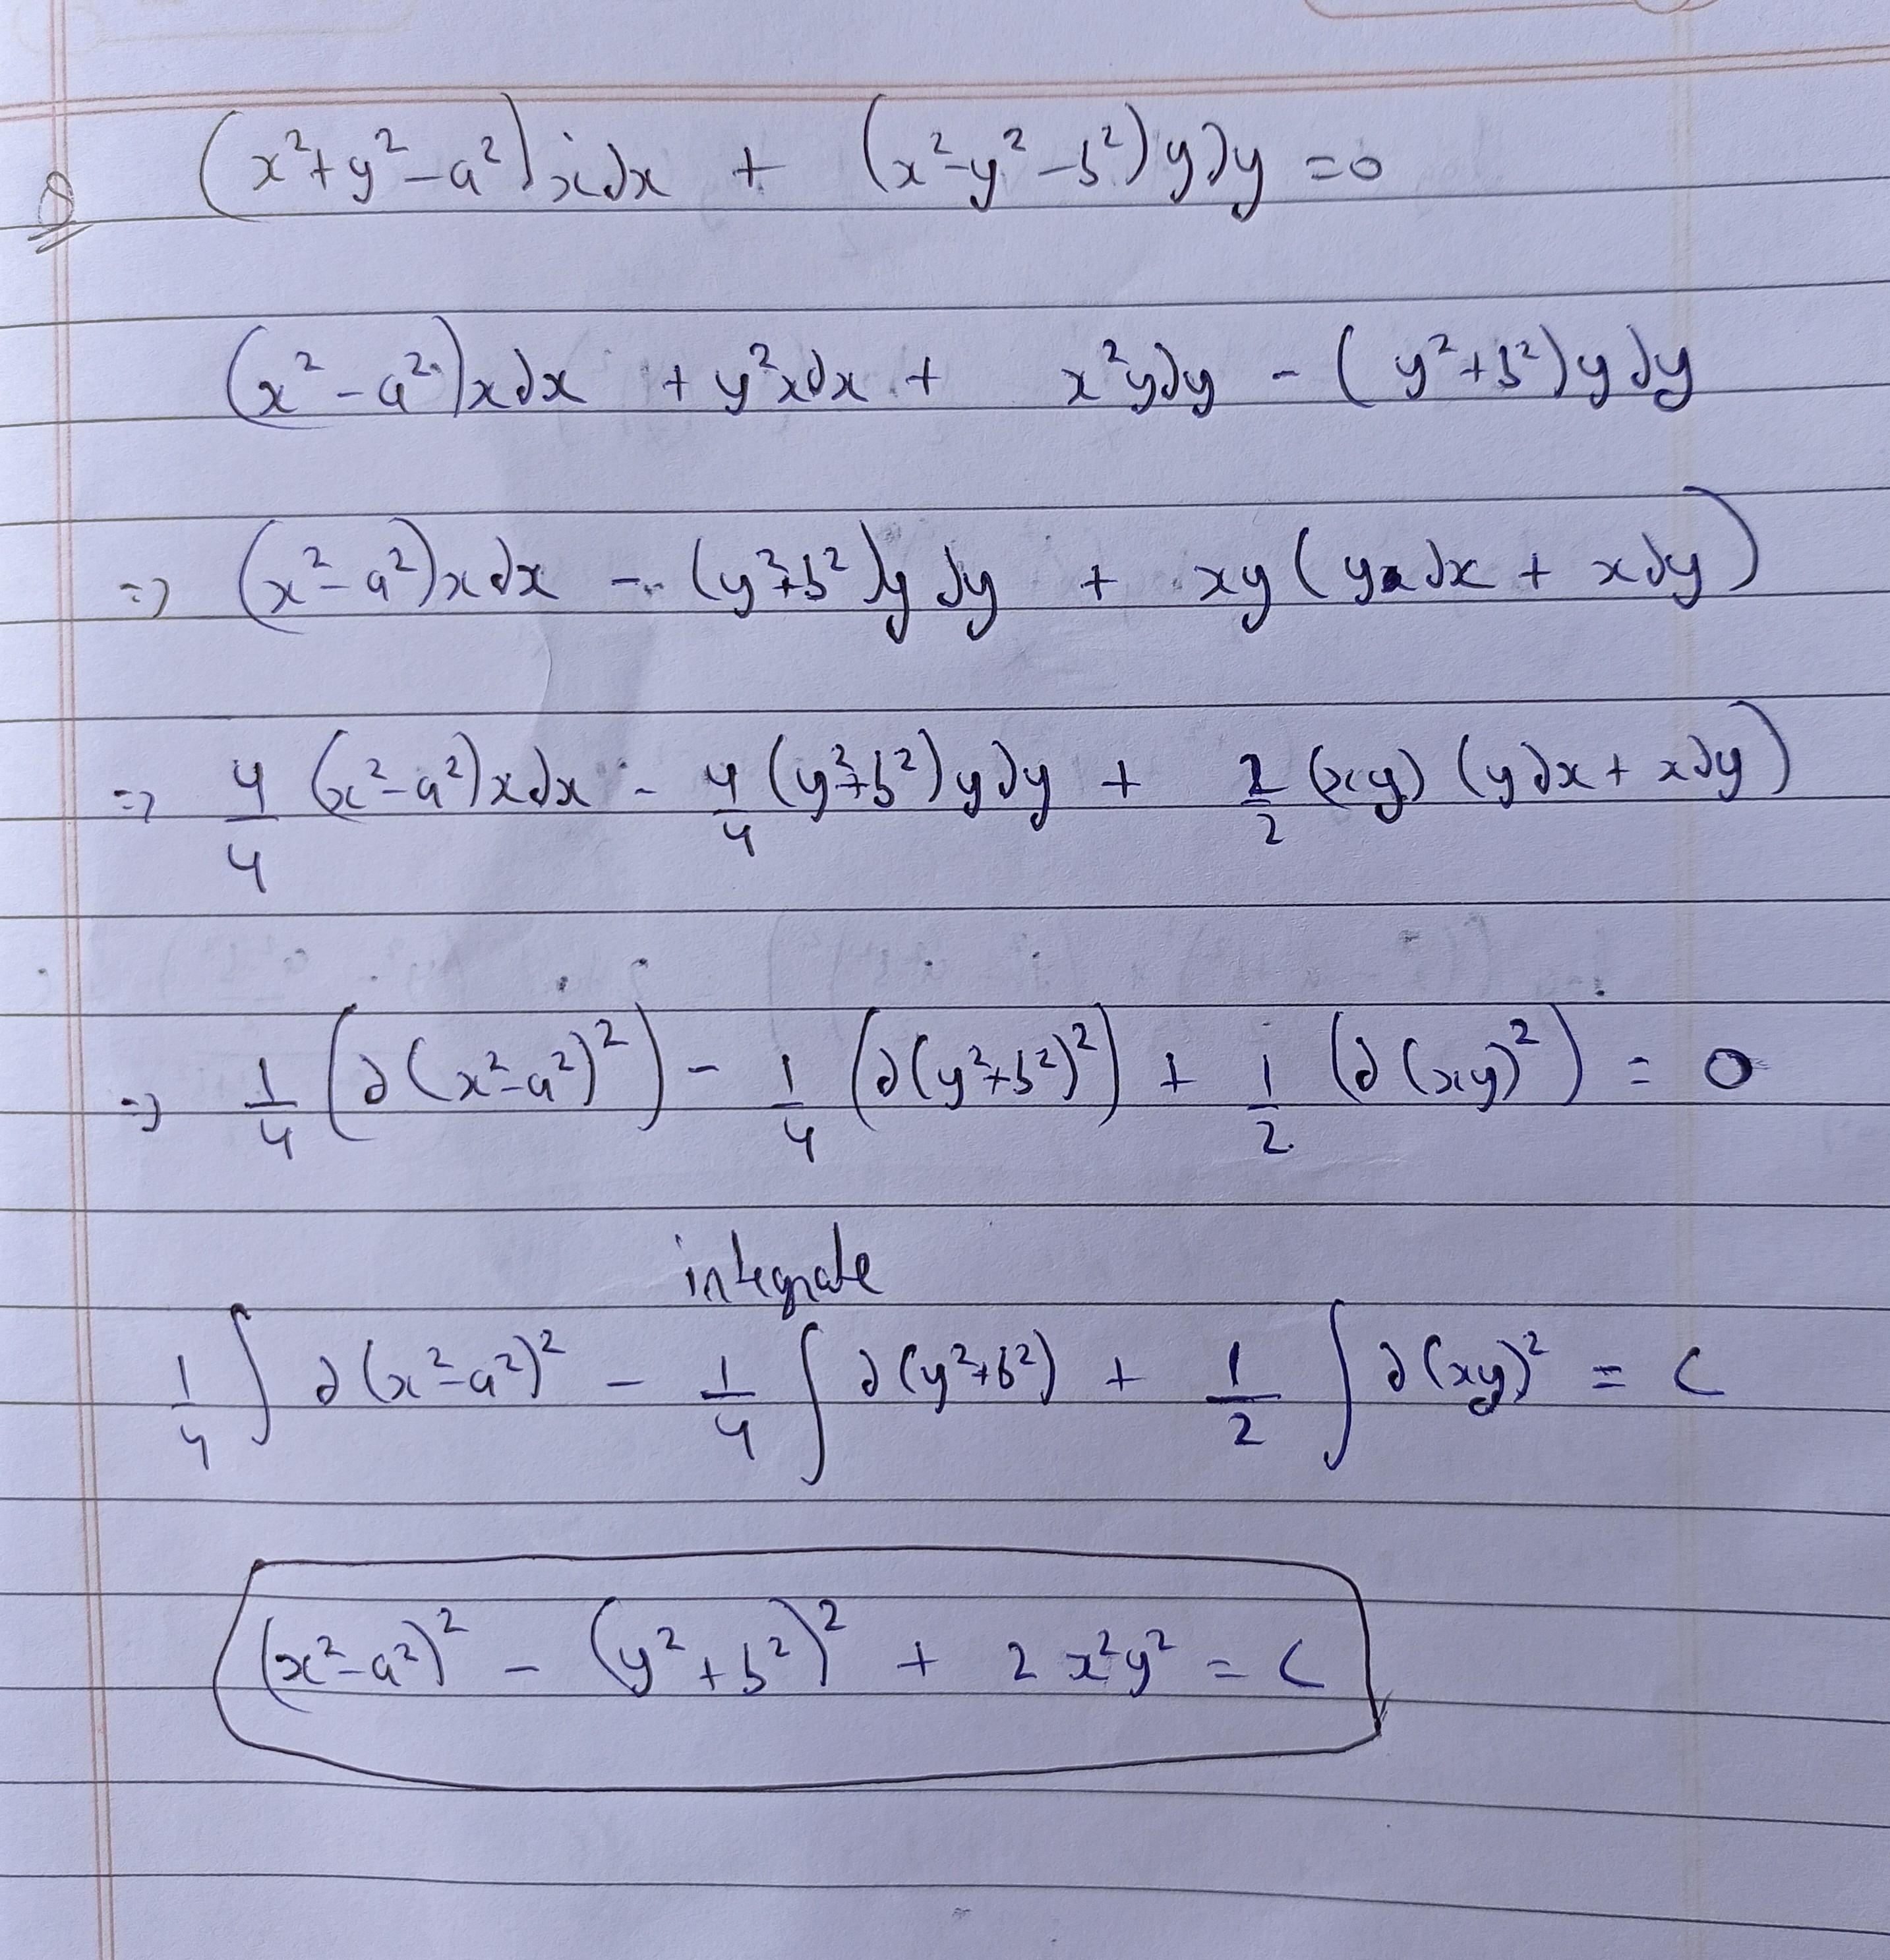 Q (x²+y²-a²)xdx + (x²-y²-b²)ydy =0
(x²-a²)xdx + y²xdx + x²ydy - (y²+b²)ydy
=> (x²-a²)xdx - (y²+b²)ydy + xy(ydx + xdy)
=> 4/4 (x²-a²)xdx - 4/4 (y²+b²)ydy + 2/2 (xy) (ydx + xdy)
=> 1/4 (d(x²-a²)²) - 1/4 (d(y²+b²)²) + 1/2 (d(xy)²) = 0
integrate
1/4 ∫ d(x²-a²)² - 1/4 ∫ d(y²+b²) + 1/2 ∫ d(xy)² = c
(x²-a²)² - (y²+b²)² + 2x²y² = c